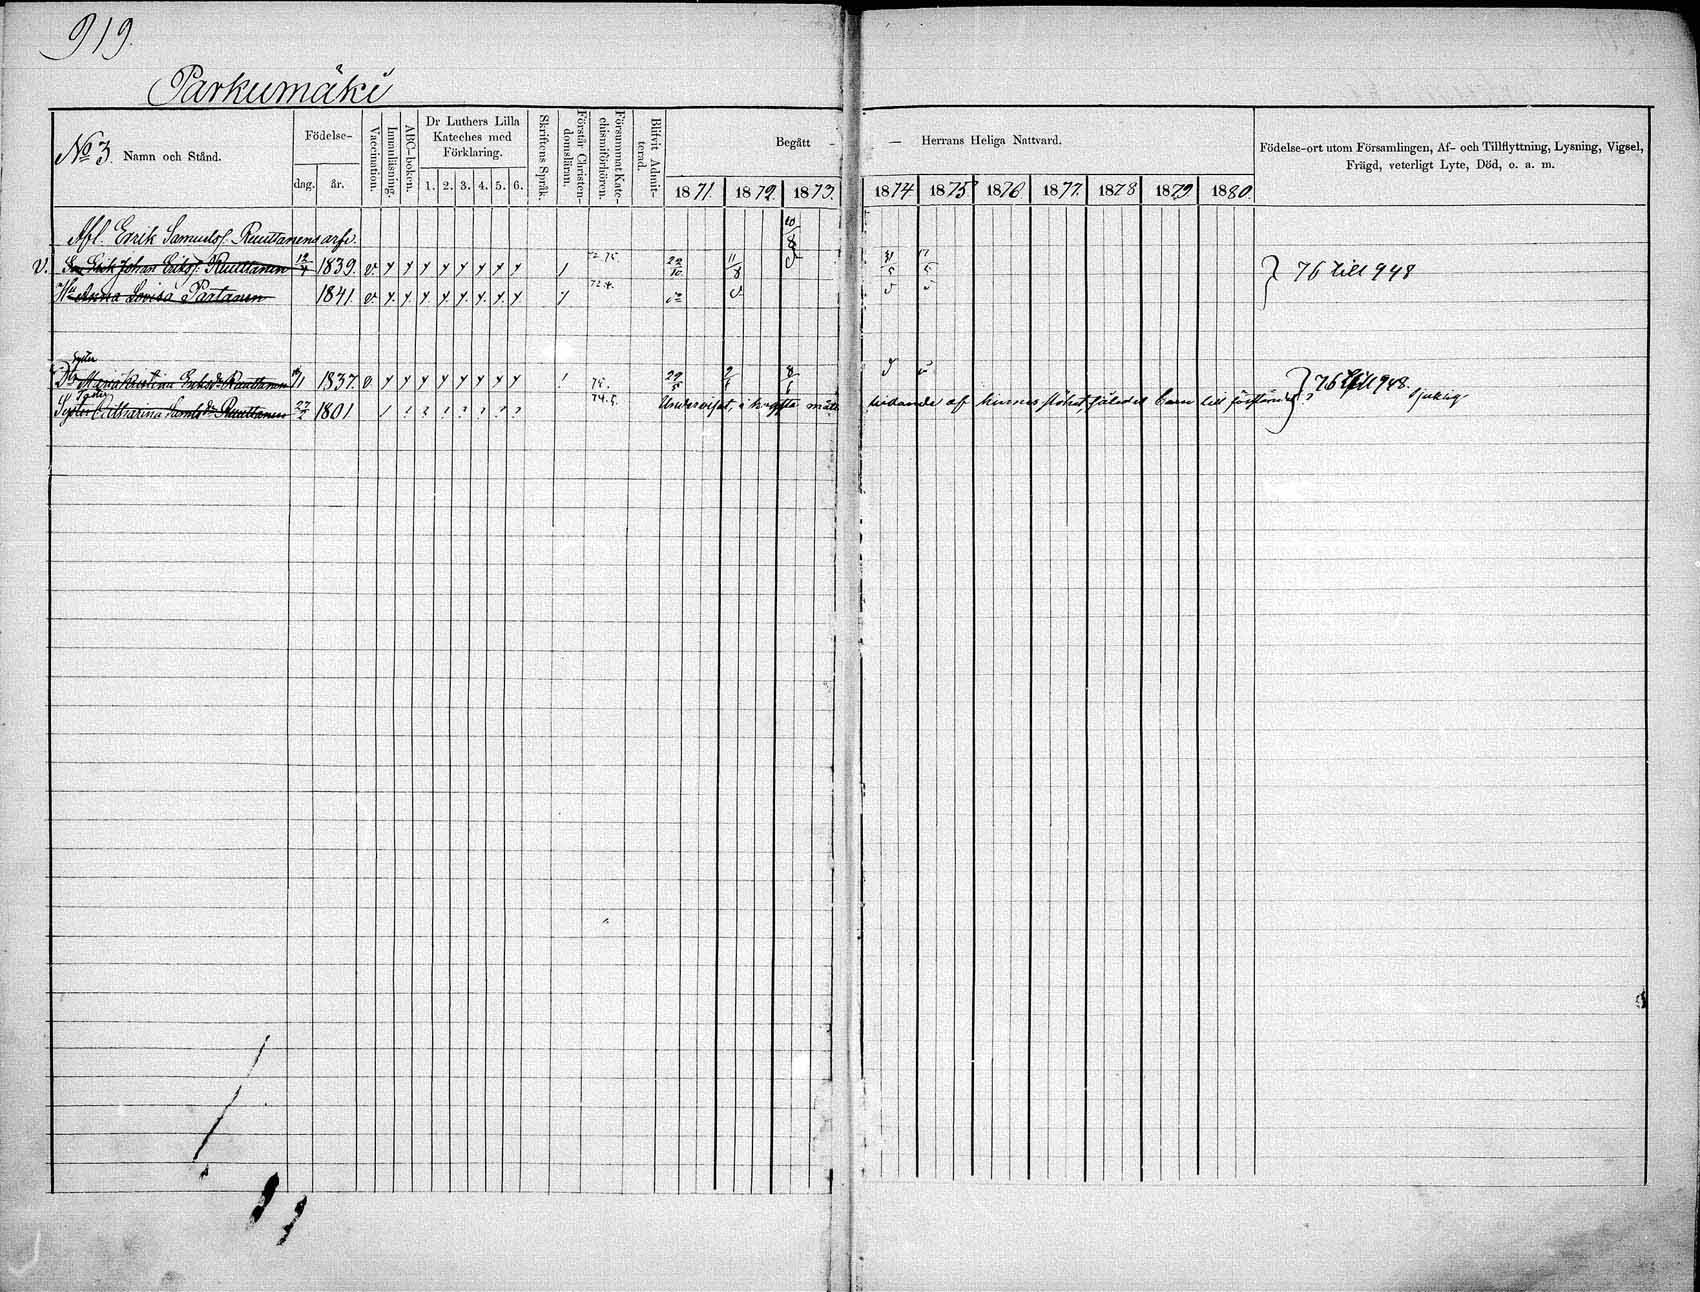 919.
Parkumäki
No 3. Namn och Stånd.
Födelse-
dag. år.
Vaccination.
Innanläsning.
ABC-boken.
Dr Luthers Lilla
Kateches med
Förklaring.
1. 2. 3. 4. 5. 6.
Skriftens Språk.
Förstår Christen-
domsläran.
Försummat Kate-
chismiförhören.
Blifvit Admit-
terad.
Begått - — Herrans Heliga Nattvard.
1871. 1872. 1873. 1874 1875 1876 1877. 1878 1879 1880.
Födelse-ort utom Församlingen, Af- och Tillflyttning, Lysning, Vigsel,
Frägd, veterligt Lyte, Död, o. a. m.
Afl. Errik Samuelss. Ruuttanens arfv.
v. Son Erik Johan Eriks. Ruuttanen 12/4 1839. v 72. 75. 29/10 11/8 31/5 76 till 948
Hu Anna Lovisa Partanen 1841. v
Syster
Dr Maria Kristina Eriksdr Ruuttanen 1837. v 75. 76 till 948.
Faster
Syster Catharina Samlsdr Ruuttanen 27/2 1801. 74. 5. Undervisat, i högsta af till Sjuklig